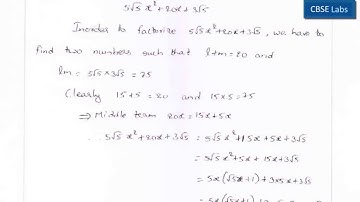 CBSE Labs
5√5 x² + 20x + 3√5
Inorder to factorise 5√5 x² + 20x + 3√5, we have to
find two numbers such that l+m = 20 and
lm = 5√5 × 3√5 = 75
Clearly 15+5 = 20 and 15×5 = 75
⇒ Middle term 20x = 15x + 5x
∴ 5√5 x² + 20x + 3√5 = 5√5 x² + 15x + 5x + 3√5
= 5√5 x² + 5x + 15x + 3√5
= 5x(√5x+1) + 3×5x + 3√5
= 5x(√5x+1)